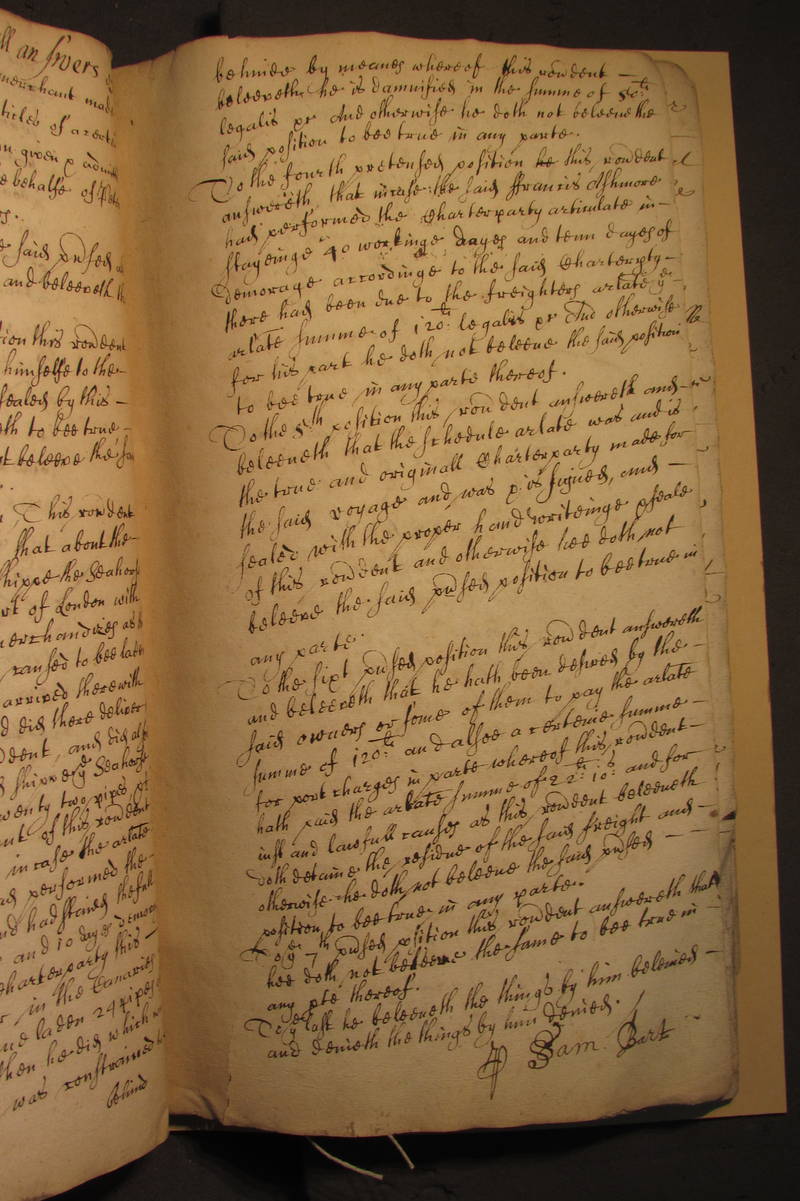 ll answers
merchant mad
ticles of a certi
n given & admi
e behalfe of Pet
rs.
e said prsed
and beleeveth th
tion this rondent
himselfe to the
sealed by this —
eth to bee true —
ot beleeve the sa
This rondent
that about the
shippe the Seahors
rt of London with
merchandizes as
caused to bee laden
arrived therewith
d did there deliver
dent, and did al
shippe ye Seahorse
wenty two pipes of
nt of this rondent
in case the arlate
performed the
nd had staied the full
and 10 dayes demor
Charterparty this —
r in the Canaries
and laden 24 pipes
then he did which
was constrained
behind
behinde by meanes whereof this rondent —
beleeveth he is damnified in the summe of 50li
legalis &c And otherwise he doth not beleeve the
said position to bee true in any parte.
To the fourth pretensed position this rondent
answereth, that incase the said ffrancis Ashmore
had performed the Charterparty articulate in-
stayeinge 40 workinge dayes and tenn dayes of
Demorage accordinge to the said Charterpty —
there had been due to the freighters arlate ye
arlate summe of 120li legalis &c And otherwise
for his part he doth not beleeve the said position
to bee true in any parte thereof.
To the 5th position this rondent answereth and —
beleeveth that the schedule arlate was and is
the true and originall Charterparty made for
the said voyage and was signed, and —
sealed with the proper handwriteinge & seale
of this rondent and otherwise hee doth not
beleeve the said prsed position to bee true in
any parte.
To the sixt prsed position this rondent answereth
and beleeveth that he hath been desired by the —
said owners or some of them to pay the arlate
summe of 120li and alsoe a certeine summe —
for port charges in parte whereof this rondent —
hath paid the arlate summe of 22li 10s and for
iust and lawfull causes as this rondent beleeveth
doth detaine the residue of the said freight and —
otherwise he doth not beleeve the said prsed —
position to bee true in any parte.
To ye 7th prsed position this rondent answereth that
hee doth not beleeve the same to bee true in —
any pte thereof.
To ye last he beleeveth the things by him beleived —
and denieth the things by him denied.
Sam: Bart